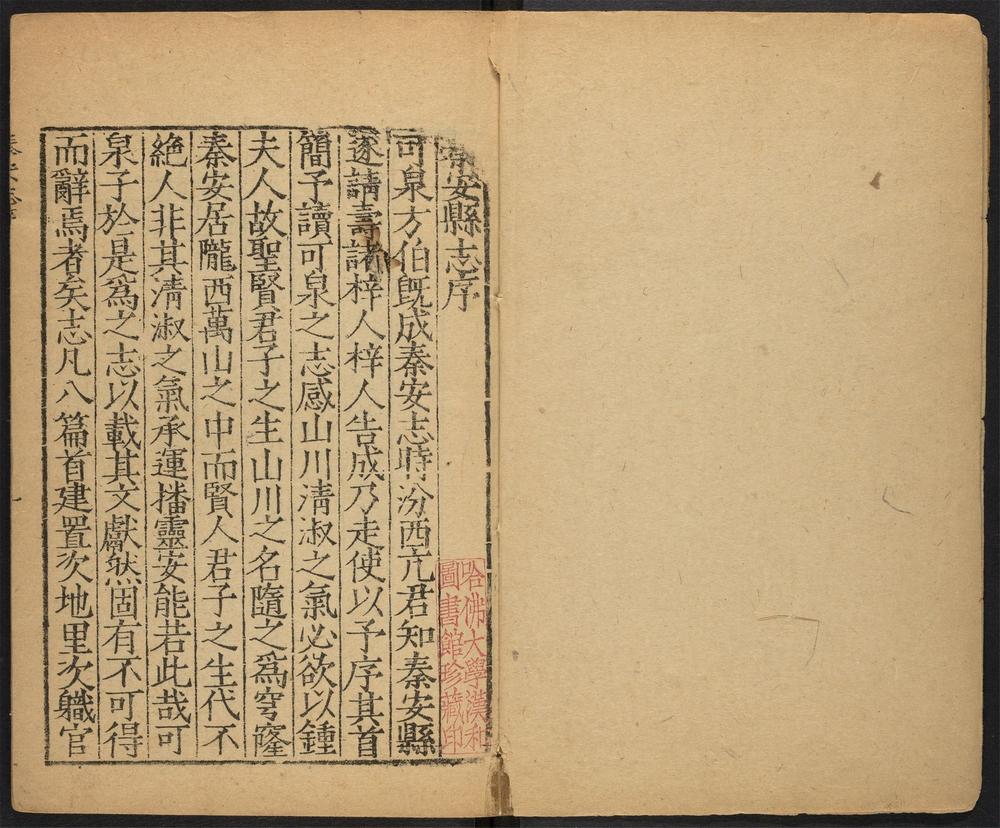 秦安縣志序
可泉方伯旣成秦安志時汾西亢君知秦安縣
遂請壽諸梓人梓人告成乃走使以予序其首
簡予讀可泉之志感山川淸淑之氣必欲以鍾
夫人故聖賢君子之生山川之名隨之爲穹窿
秦安居隴西萬山之中而賢人君子之生代不
絶人非其淸淑之氣承運播靈安能若此哉可
泉子於是爲之志以載其文獻然固有不可得
而辭焉者矣志凡八篇首建置次地里次軄官
哈佛大學漢和
圖書館珍藏印